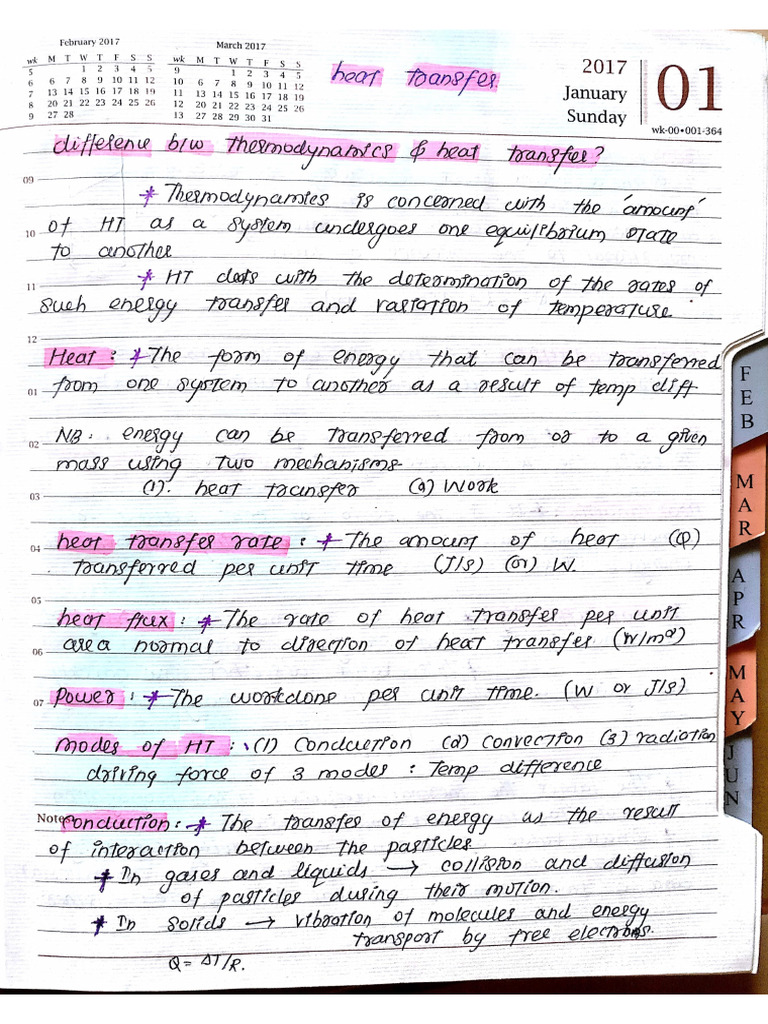 February 2017
wk M T W T F S S
5 1 2 3 4 5
6 6 7 8 9 10 11 12
7 13 14 15 16 17 18 19
8 20 21 22 23 24 25 26
9 27 28
March 2017
wk M T W T F S S
9 1 2 3 4 5
10 6 7 8 9 10 11 12
11 13 14 15 16 17 18 19
12 20 21 22 23 24 25 26
13 27 28 29 30 31
heat transfer
2017
January
Sunday
01
wk-00•001-364
difference b/w thermodynamics & heat transfer?
09
* Thermodynamics is concerned with the 'amount'
10 of HT as a system undergoes one equilibrium state
to another
11 * HT deals with the determination of the rates of
such energy transfer and variation of temperature.
12
Heat : * The form of energy that can be transferred
01 from one system to another as a result of temp diff
02 NB: energy can be transferred from or to a given
mass using two mechanisms-
03 (1). heat transfer (2) Work
04 heat transfer rate : * The amount of heat (Q)
transferred per unit time (J/s) (or) W.
05
heat flux : * The rate of heat transfer per unit
06 area normal to direction of heat transfer (W/m2)
07 Power : * The workdone per unit time. (W or J/s)
modes of HT : (1) Conduction (2) convection (3) radiation
driving force of 3 modes : Temp difference
Notes
Conduction : * The transfer of energy as the result
of interaction between the particles
* In gases and liquids → collision and diffusion
of particles during their motion.
* In solids → vibration of molecules and energy
transport by free electrons.
Q = ΔT/R.
FEB
MAR
APR
MAY
JUN